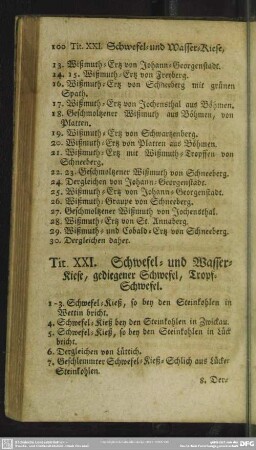 100 Tit. XXI. Schwefel- und Wasser-Kiese,
13. Wißmuth-Ertz von Johann-Georgenstadt.
14. 15. Wißmuth-Ertz von Freyberg.
16. Wißmuth-Ertz von Schneeberg mit grünen
Spath.
17. Wißmuth-Ertz von Jochensthal aus Böhmen.
18. Geschmoltzener Wißmuth aus Böhmen, von
Platten.
19. Wißmuth-Ertz von Schwartzenberg.
20. Wißmuth-Ertz von Platten aus Böhmen.
21. Wißmuth-Ertz mit Wißmuth-Tropffen von
Schneeberg.
22. 23. Geschmoltzener Wißmuth von Schneeberg.
24. Dergleichen von Johann-Georgenstadt.
25. Wißmuth-Ertz von Johann-Georgenstadt.
26. Wißmuth-Graupe von Schneeberg.
27. Geschmoltzener Wißmuth von Jochensthal.
28. Wißmuth-Ertz von St. Annaberg.
29. Wißmuth- und Cobald-Ertz von Schneeberg.
30. Dergleichen daher.
Tit. XXI. Schwefel- und Wasser-
Kiese, gediegener Schwefel, Tropf-
Schwefel.
1-3. Schwefel-Kieß, so bey den Steinkohlen in
Wettin bricht.
4. Schwefel-Kieß bey den Steinkohlen in Zwickau.
5. Schwefel-Kieß, so bey den Steinkohlen in Lück
bricht.
6. Dergleichen von Lüttich.
7. Geschlemmter Schwefel-Kieß-Schlich aus Lücker
Steinkohlen.
8. Der-
DFG